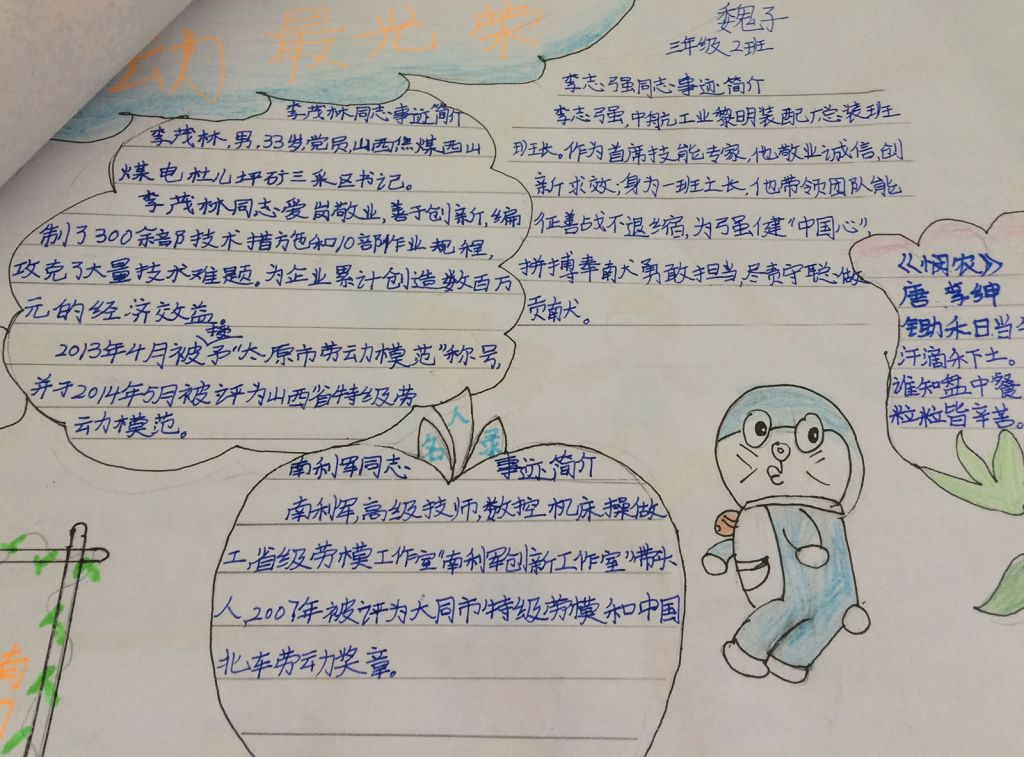 动最光荣
魏子
三年级2班
李茂林同志事迹简介
李茂林,男,33岁,党员,山西焦煤西山
煤电杜儿坪矿三采区书记。
李茂林同志爱岗敬业,善于创新,编
制了300余部技术措施和10部作业规程,
攻克了大量技术难题。为企业累计创造数百万
元的经济效益。
2013年4月被授予“太原市劳动模范”称号,
并于2014年5月被评为山西省特级劳
动模范。
李志强同志事迹简介
李志强,中航工业黎明装配厂总装班
班长。作为首席技能专家,他敬业诚信,创
新求效;身为一班之长,他带领团队能
征善战不退缩,为强健“中国心”,
拼搏奉献勇敢担当,尽责守职做
贡献。
《悯农》
唐 李绅
锄禾日当午
汗滴禾下土。
谁知盘中餐
粒粒皆辛苦。
名人录
南利军同志事迹简介
南利军,高级技师,数控机床操做
工,省级劳模工作室“南利军创新工作室”带头
人,2007年被评为大同市特级劳模和中国
北车劳动奖章。